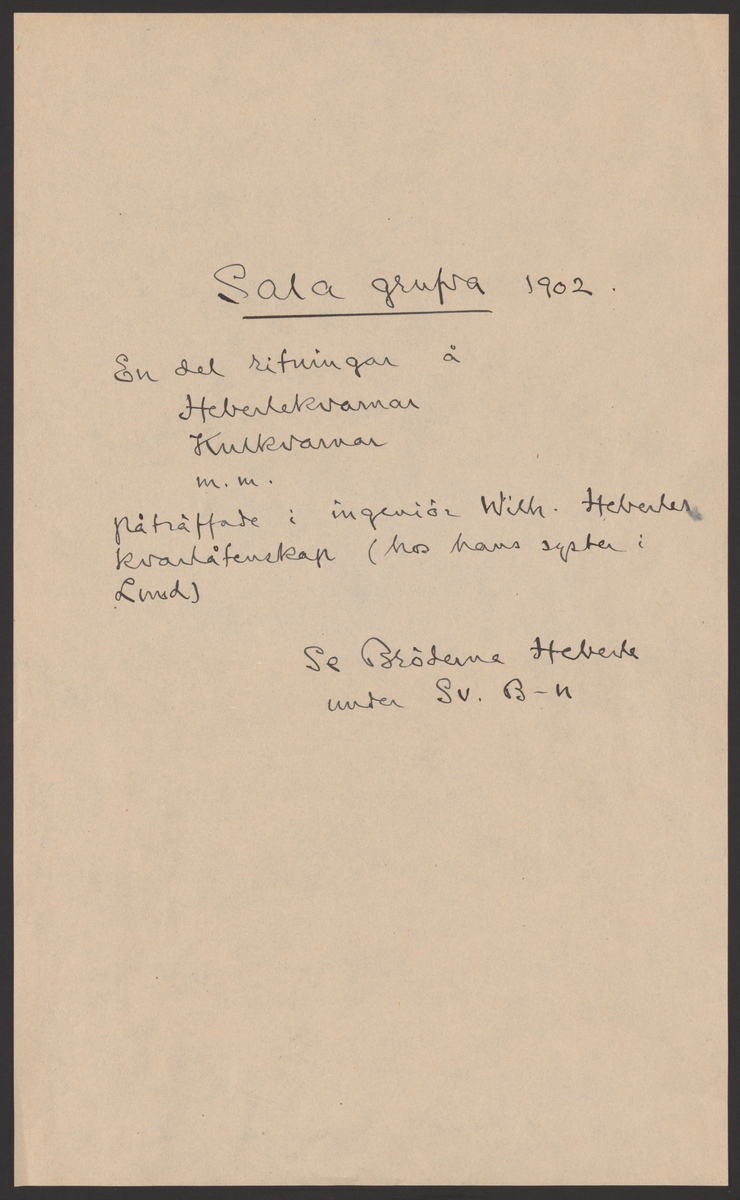 Sala grufva 1902.
En del ritningar å
Heberlekvarnar
Kulkvarnar
m. m.
påträffade i ingeniör Wilh. Heberles
kvarlåtenskap (hos hans syster i
Lund)
Se Bröderna Heberle
under Sv. B-n